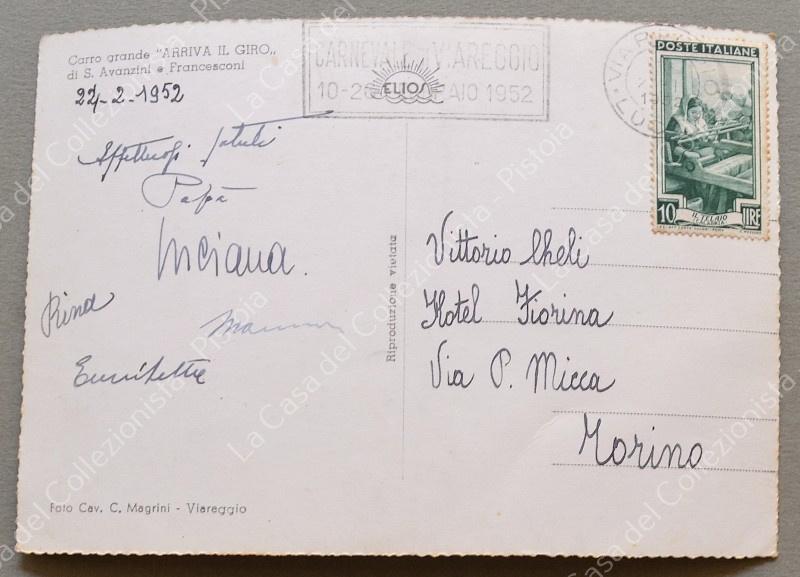 Carro grande "ARRIVA IL GIRO„
di S. Avanzini e Francesconi
22-2-1952
Affettuosi saluti
Papà
Luciana.
Rina
Mamma
Foto Cav. C. Magrini - Viareggio
Riproduzione vietata
CARNEVALE VIAREGGIO
ELIOS
10-26 FEBBRAIO 1952
POSTE ITALIANE
10 LIRE
IL TELAIO
CALABRIA
Vittorio Cheli
Hotel Fiorina
Via P. Micca
Torino
La Casa del Collezionista - Pistoia